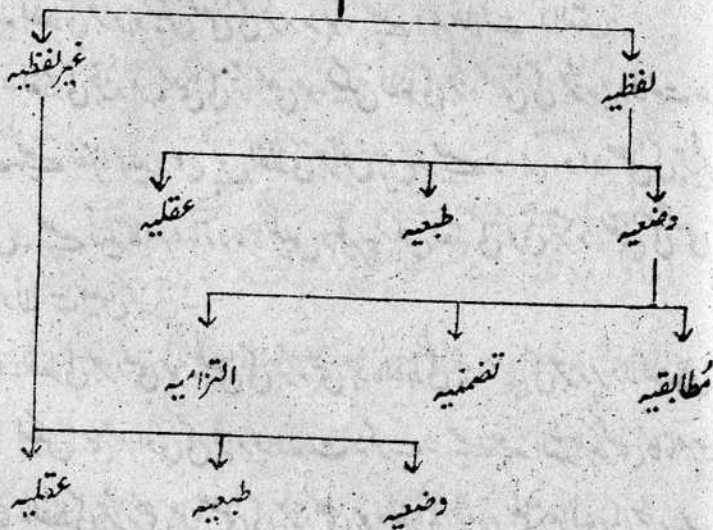 لفظیہ غیر لفظیہ
وضعیہ طبعیہ عقلیہ
مُطابقیہ تضمنیہ التزامیہ
وضعیہ طبعیہ عقلیہ